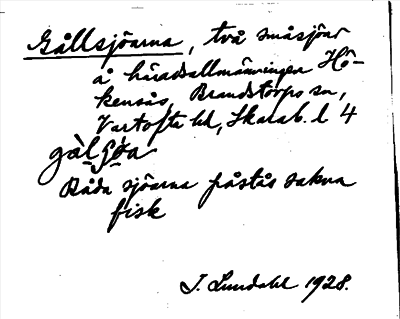 Gållsjöarna, två småsjöar
å häradsallmänningen Hö-
kensås, Brandstorps sn,
Vartofta hd, Skarab. l 4
gàlʃo̱a
Båda sjöarna påstås sakna
fisk
J. Lundahl 1928.